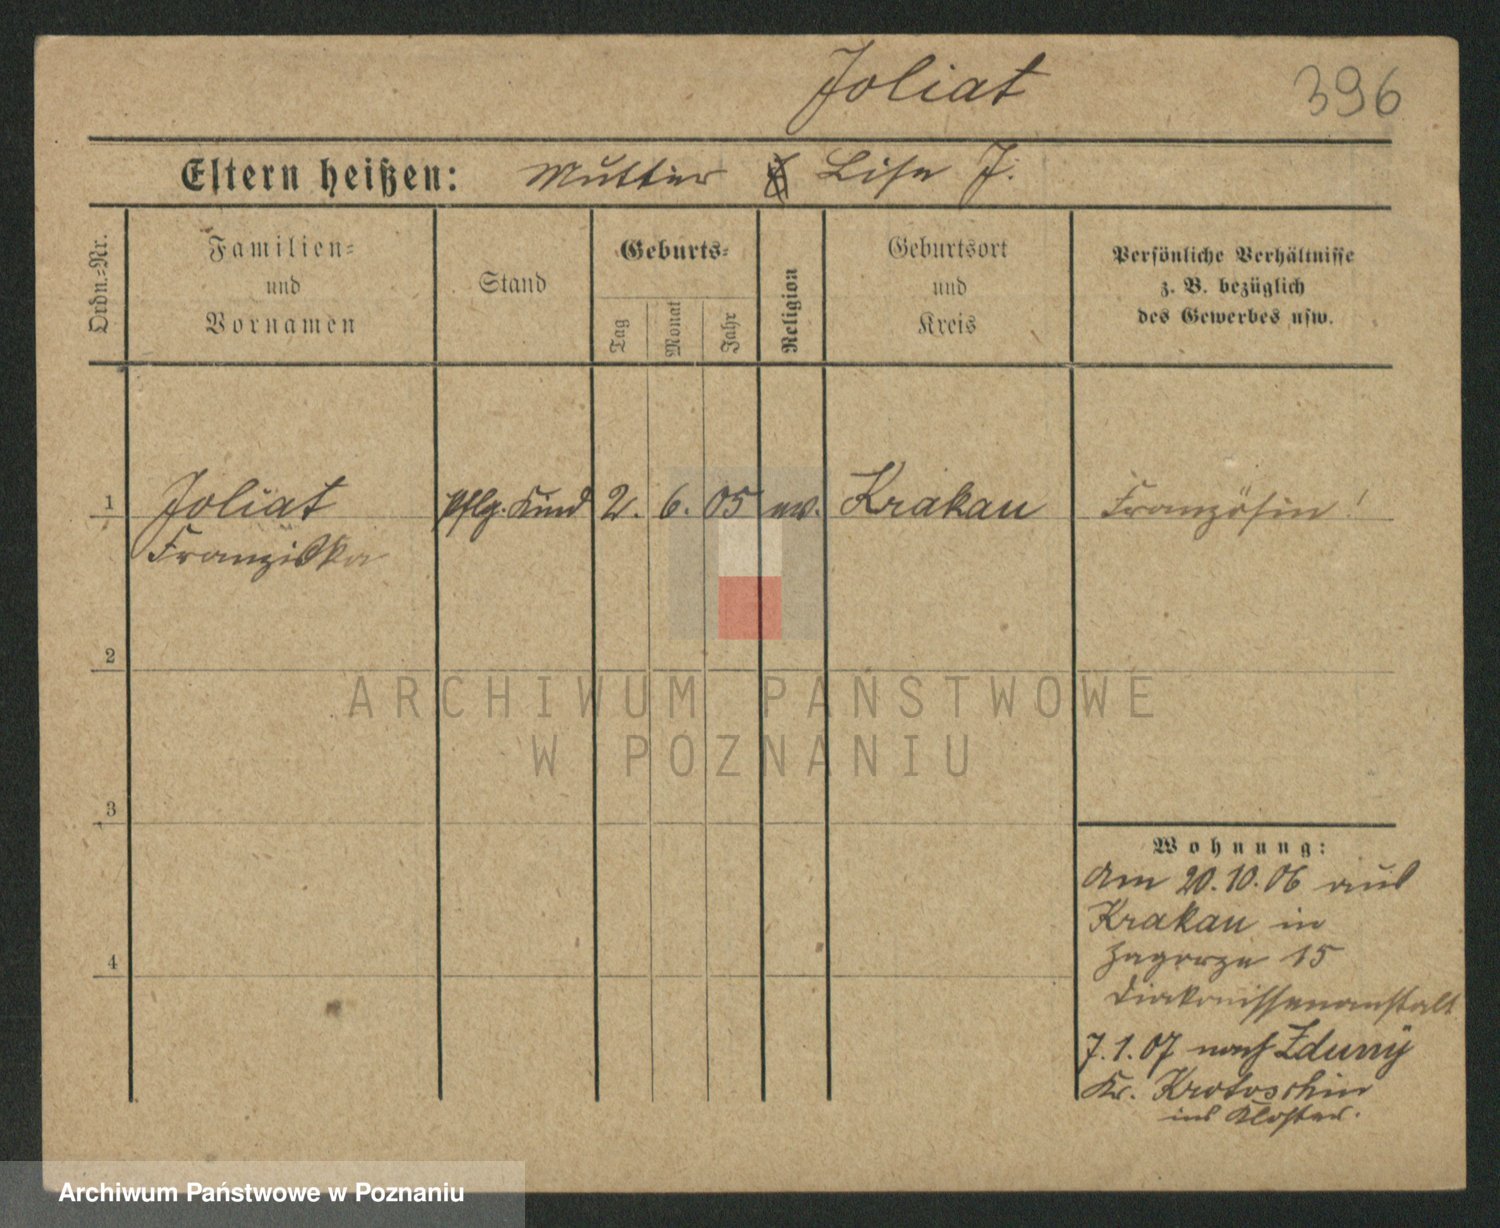 Joliat
396
Eltern heißen: Mutter Lise J.
Ordn.=Nr.
Familien=
und
Vornamen
Stand
Geburts=
Tag
Monat
Jahr
Religion
Geburtsort
und
Kreis
Persönliche Verhältnisse
z. B. bezüglich
des Gewerbes usw.
1
Joliat
Franziska
Pflg. Kind
2. 6. 05
ev.
Krakau
Französin!
2
ARCHIWUM PAŃSTWOWE
W POZNANIU
3
4
Wohnung:
Am 20.10.06 aus
Krakau in
Zagorze 15
Diakonissenanstalt
7.1.07 nach Zduny
Kr. Krotoschin
ins Kloster.
Archiwum Państwowe w Poznaniu